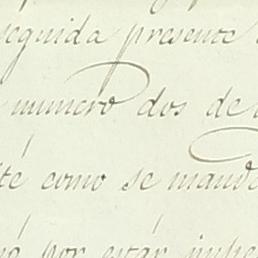 seguida presente
numero dos de
té como se mande
por estár